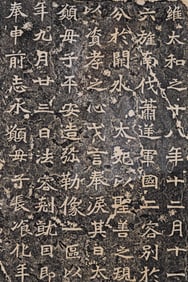 維太和之十八年十二月十一
六旌南伐蕭逆軍國二容別於
分於闕外太妃以聖善之規
以資孝之心戈言奉淚其日太
願母子平安造彌勒像一區以
年九月廿三日法容剋就因即
奉申前志永願母子長化年